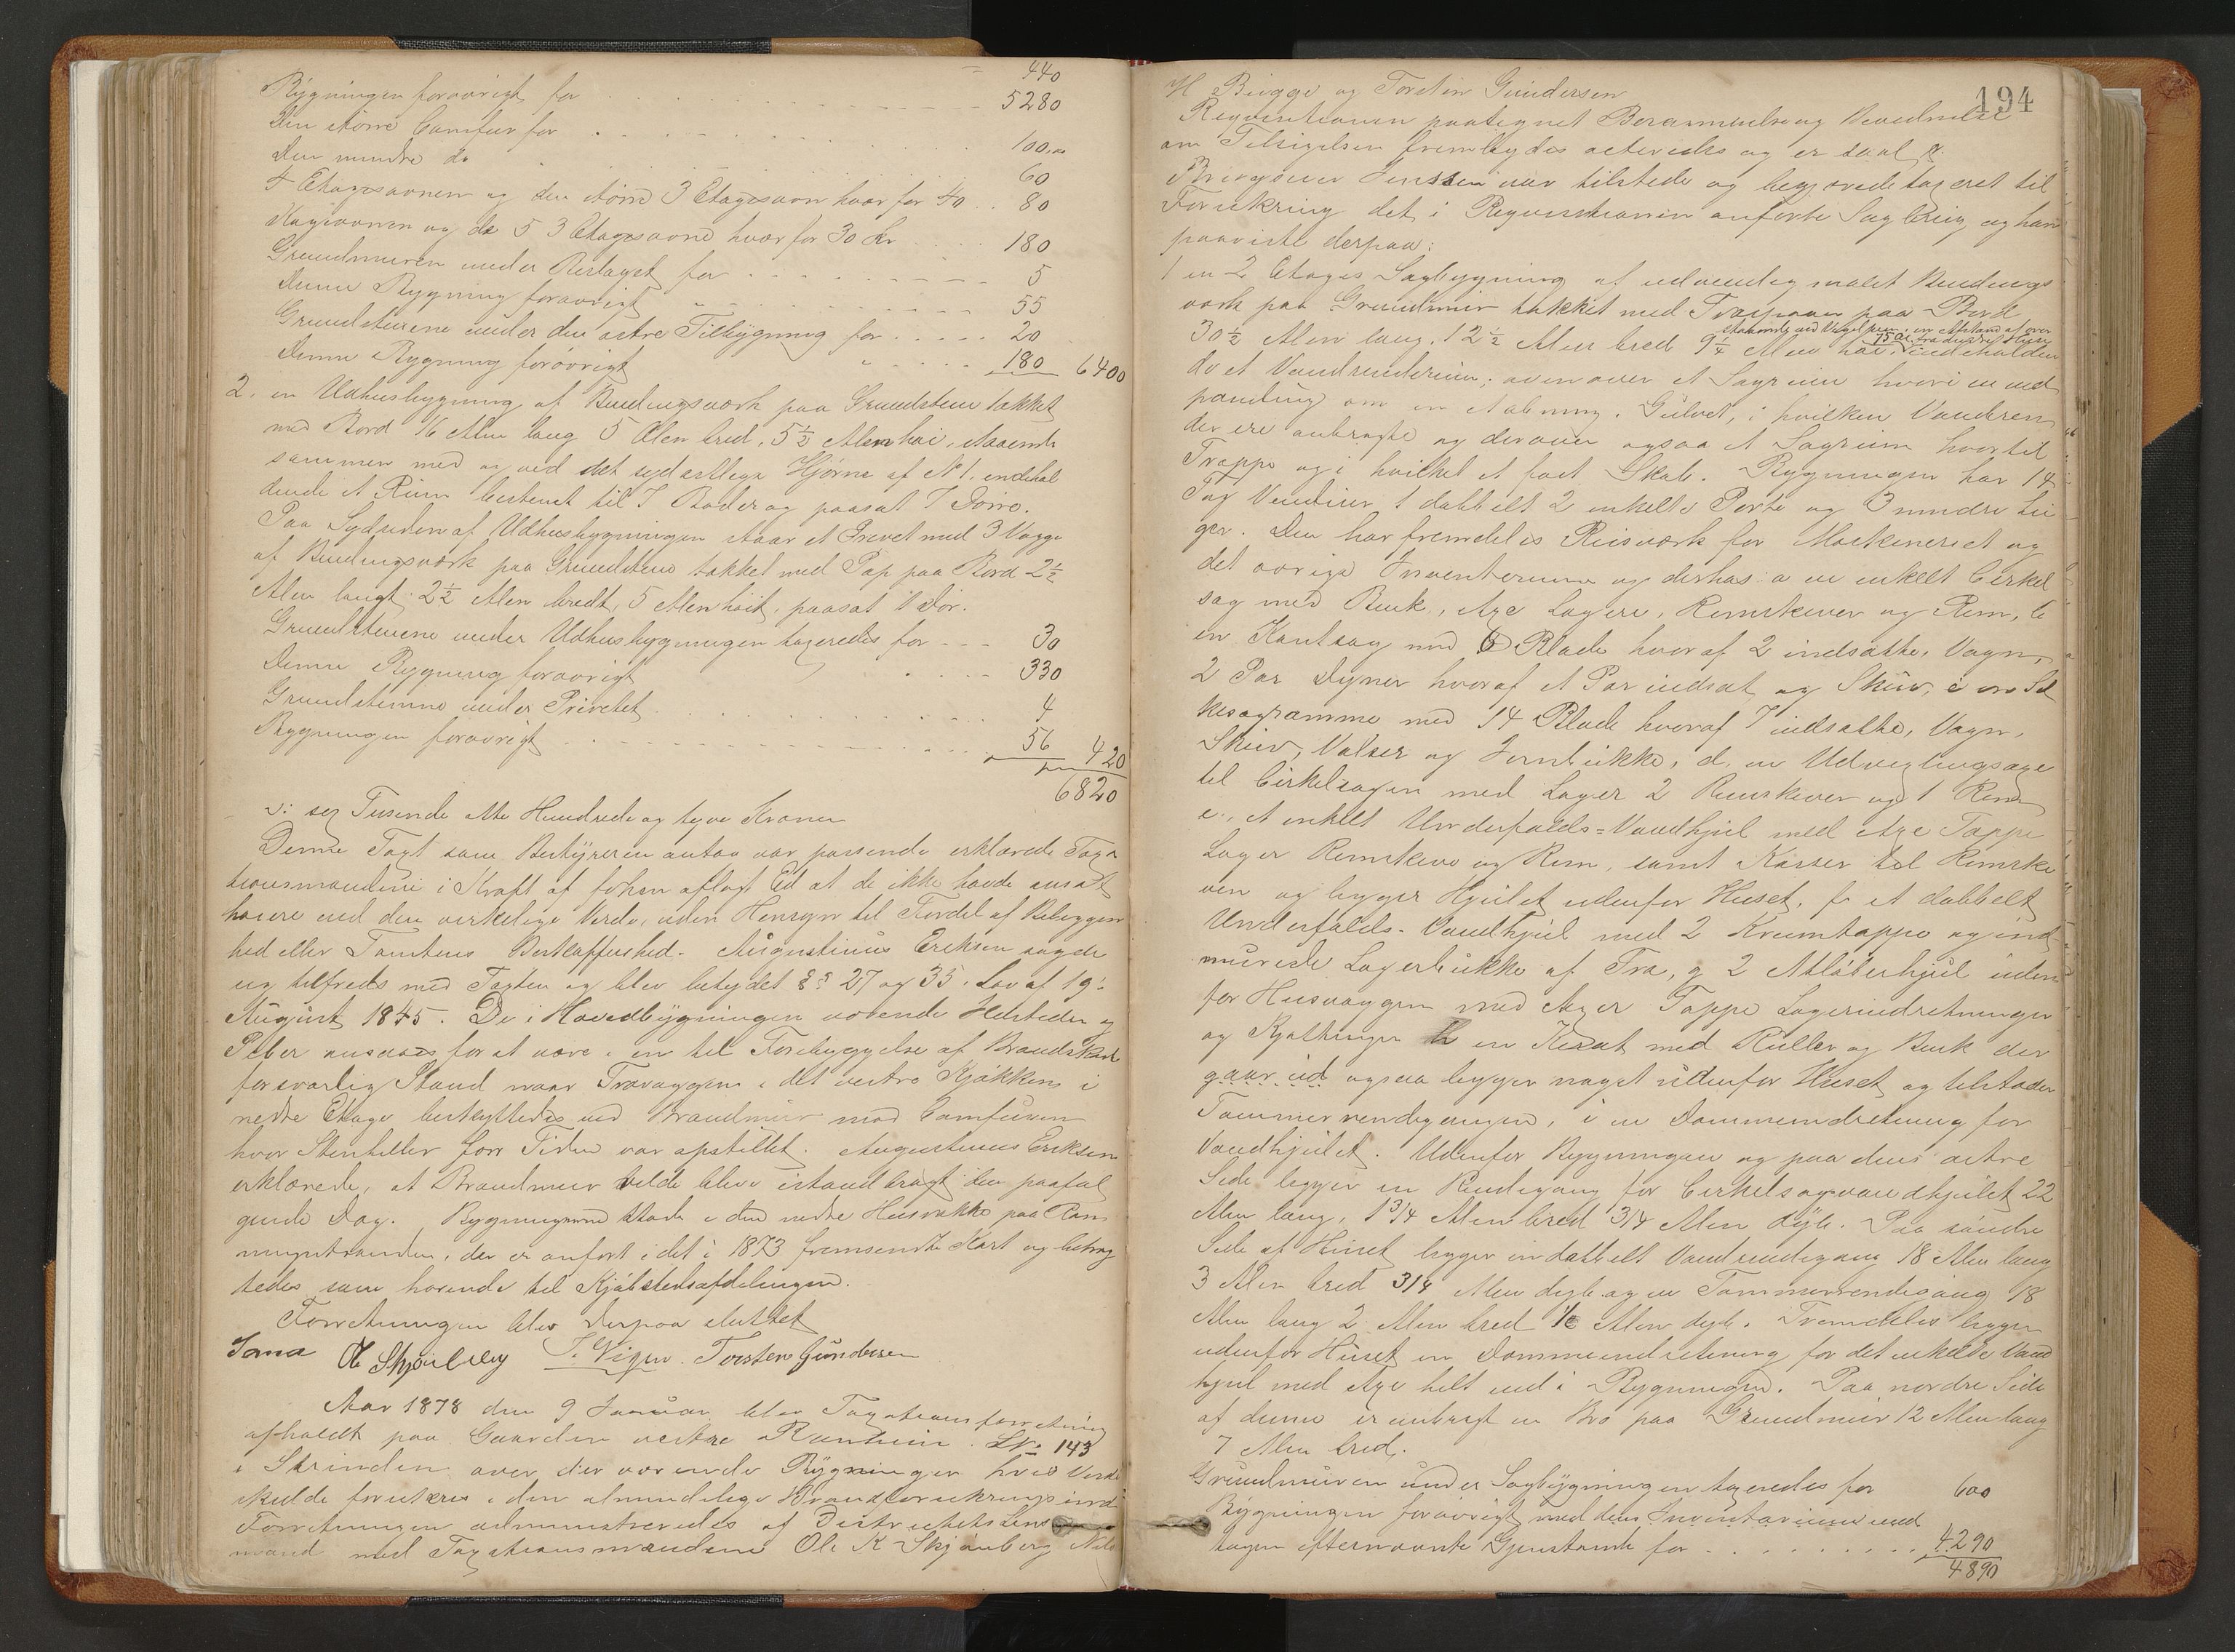 440
Bygningen forøvrigt for 5280
Den större Comfur for 100
Den mindre do 60
4 Etagesovnen og den större 3 Etagesovn hver for 40 80
Kageovnen og de 5 3 Etagesovne hver for 30 Kr 180
Grundmuren under for 5
Denne Bygning forøvrigt 55
Grundstenene under den østre Tilbygning for 20
Denne Bygning forøvrigt 180 6400
2. en Udhusbygning af Bindingsværk paa Grundstene tækket
med Bord 16 Alen lang 5 Alen bred, 5½ Alen höi, staaende
sammen med og ved det sydøstlige Hjørne af No 1. indehol
dende et Rum bestemt til 7 Boder og paasat 7 Dörre.
Paa Sydsiden af Udhusbygningen staar et Privet med 3 Vægge
af Bindingsværk paa Grundstene tækket med Pap paa Bord 2½
Alen langt 2½ Alen bredt, 5 Alen höit, paasat 1 Dör.
Grundstenene under Udhusbygningen taxeredes for 30
Denne Bygning forøvrigt 330
Grundstenene under Privetet 4
Bygningen forøvrigt 56 420
6820
o: sex Tusende otte Hundrede og tyve Kroner
Denne Taxt som Bestyreren antog var passende erklærede Taxa
tionsmændene i Kraft af forhen aflagt Ed at de ikke havde ansat
høiere end den virkelige Værdi, uden Hensyn til Fordel af Beliggen
hed eller Tomtens Beskaffenhed. Augustinus Eriksen sagde
sig tilfreds med Taxten og blev betydet §§ 27 og 35. Lov af 19.
August 1845. De i Hovedbygningen værende Ildsteder og
Piber ansaaes for at være i en til Forebyggelse af Brandskade
forsvarlig Stand naar Trævæggen i det vestre Kjøkken i
nedre Etage beskyttedes ved Brandmur mod Comfuren
hvor Stenheller for Tiden var opstillet. Augustinus Eriksen
erklærede, at Brandmur vilde blive istandbragt den paaføl
gende Dag. Bygningerne staar i den nedre Husrække paa
der er anført i det i 1873 fremsendte Kart og betrag
tedes som hørende til Kjøbstedsafdelingen.
Forretningen blev derpaa sluttet
J. Vigen. Torsten Gundersen
Aar 1878 den 9 Januar blev Taxationsforretning
afholdt paa Gaarden vestre Ranheim L No 143
i Strinden over der værende Bygninger hvis Værdi
skulde forsikres i den almindelige Brandforsikringsind
Forretningen administreredes af Distriktets Lens
mand med Taxationsmændene Ole K Skjönberg Nils
194
H Brügge og Torstin Gundersen
Reqvisitionen paategnet Berammelse og
om Tilsigelsen fremlagdes oplæstes og er saal.
Brugseier Jenssen var tilstede og begjærede taxeret til
Forsikring det i Reqvisitionen anførte Sagbrug, og han
paaviste derpaa:
1 en 2 Etages Sagbygning af udvendig malet Bindings
værk paa Grundmur tækket med Træspaan paa Bord
30½ Alen lang. 12½ Alen bred 9¼ Alen höi. indeholden
de et Vandrenderum; ovenover et Sagrum hvori en ind
paneling om en Aabning i Gulvet, i hvilken Vandren
der ere anbragte og derover ogsaa et Sagrum hvortil
Trappe og i hvilket et fast Skab. Bygningen har 14
Fag Vinduer 1 dobbelt 2 enkelte Porte og 3 mindre Lu
ger. Den har fremdeles Reisværk for Maskineriet og
det øvrige Inventarium og derhos: a en enkelt Cirkel
sag med Benk, Axe Lagere, Remskiver og Rem, b
en Kantsag med 6 Blade hvoraf 2 indsatte, Vogn,
2 Par Dyner hvoraf et Par indsat og Skruv, c en Sil
kesagramme med 14 Blade hvoraf 7 indsatte, Vogn,
Skruv, Valser og Jernbukke, d. en Udvexlingsaxe
til Cirkelsagen med Lager 2 Remskiver og 1 Rem
e. et enkelt Underfalds-Vandhjul med Axe Tappe
Lager Remskive og Rem, samt Kasser til Remski
ven og ligger Hjulet udenfor Huset, f. et dobbelt
Underfalds-Vandhjul med 2 Krumtappe og ind
murede Lagerbukke af Træ, g 2 uden
for Husvæggen med Axer Tappe Lagerindretninger
og Kjættinger h en med Ruller og Benk der
gaar ud ogsaa ligger noget udenfor Huset og tilstøder
Tømmerrendegangen, i en Dammeindretning for
Vandhjulet. Udenfor Bygningen og paa dens østre
Side ligger en Rendegang for Cirkelsagvandhjulet 22
Alen lang, 1 3/4 Alen bred 3/4 Alen dyb. Paa søndre
Side af Huset ligger en dobbelt Vandrendegang 18 Alen lang
3 Alen bred 3/4 Alen dyb og en Tømmerrendegang 18
Alen lang 2 Alen bred ½ Alen dyb. Fremdeles ligger
udenfor Huset en Dammeindretning for det enkelte Vand
hjul med Axe helt ind i Bygningen. Paa nordre Side
af denne er anbragt en Bro paa Grundmur 12 Alen lang
7 Alen bred.
Grundmuren under Sagbygningen taxeredes for 600
Bygningen forøvrigt med dens Inventarium und
tagen efternævnte Gjenstande for 4290
4890